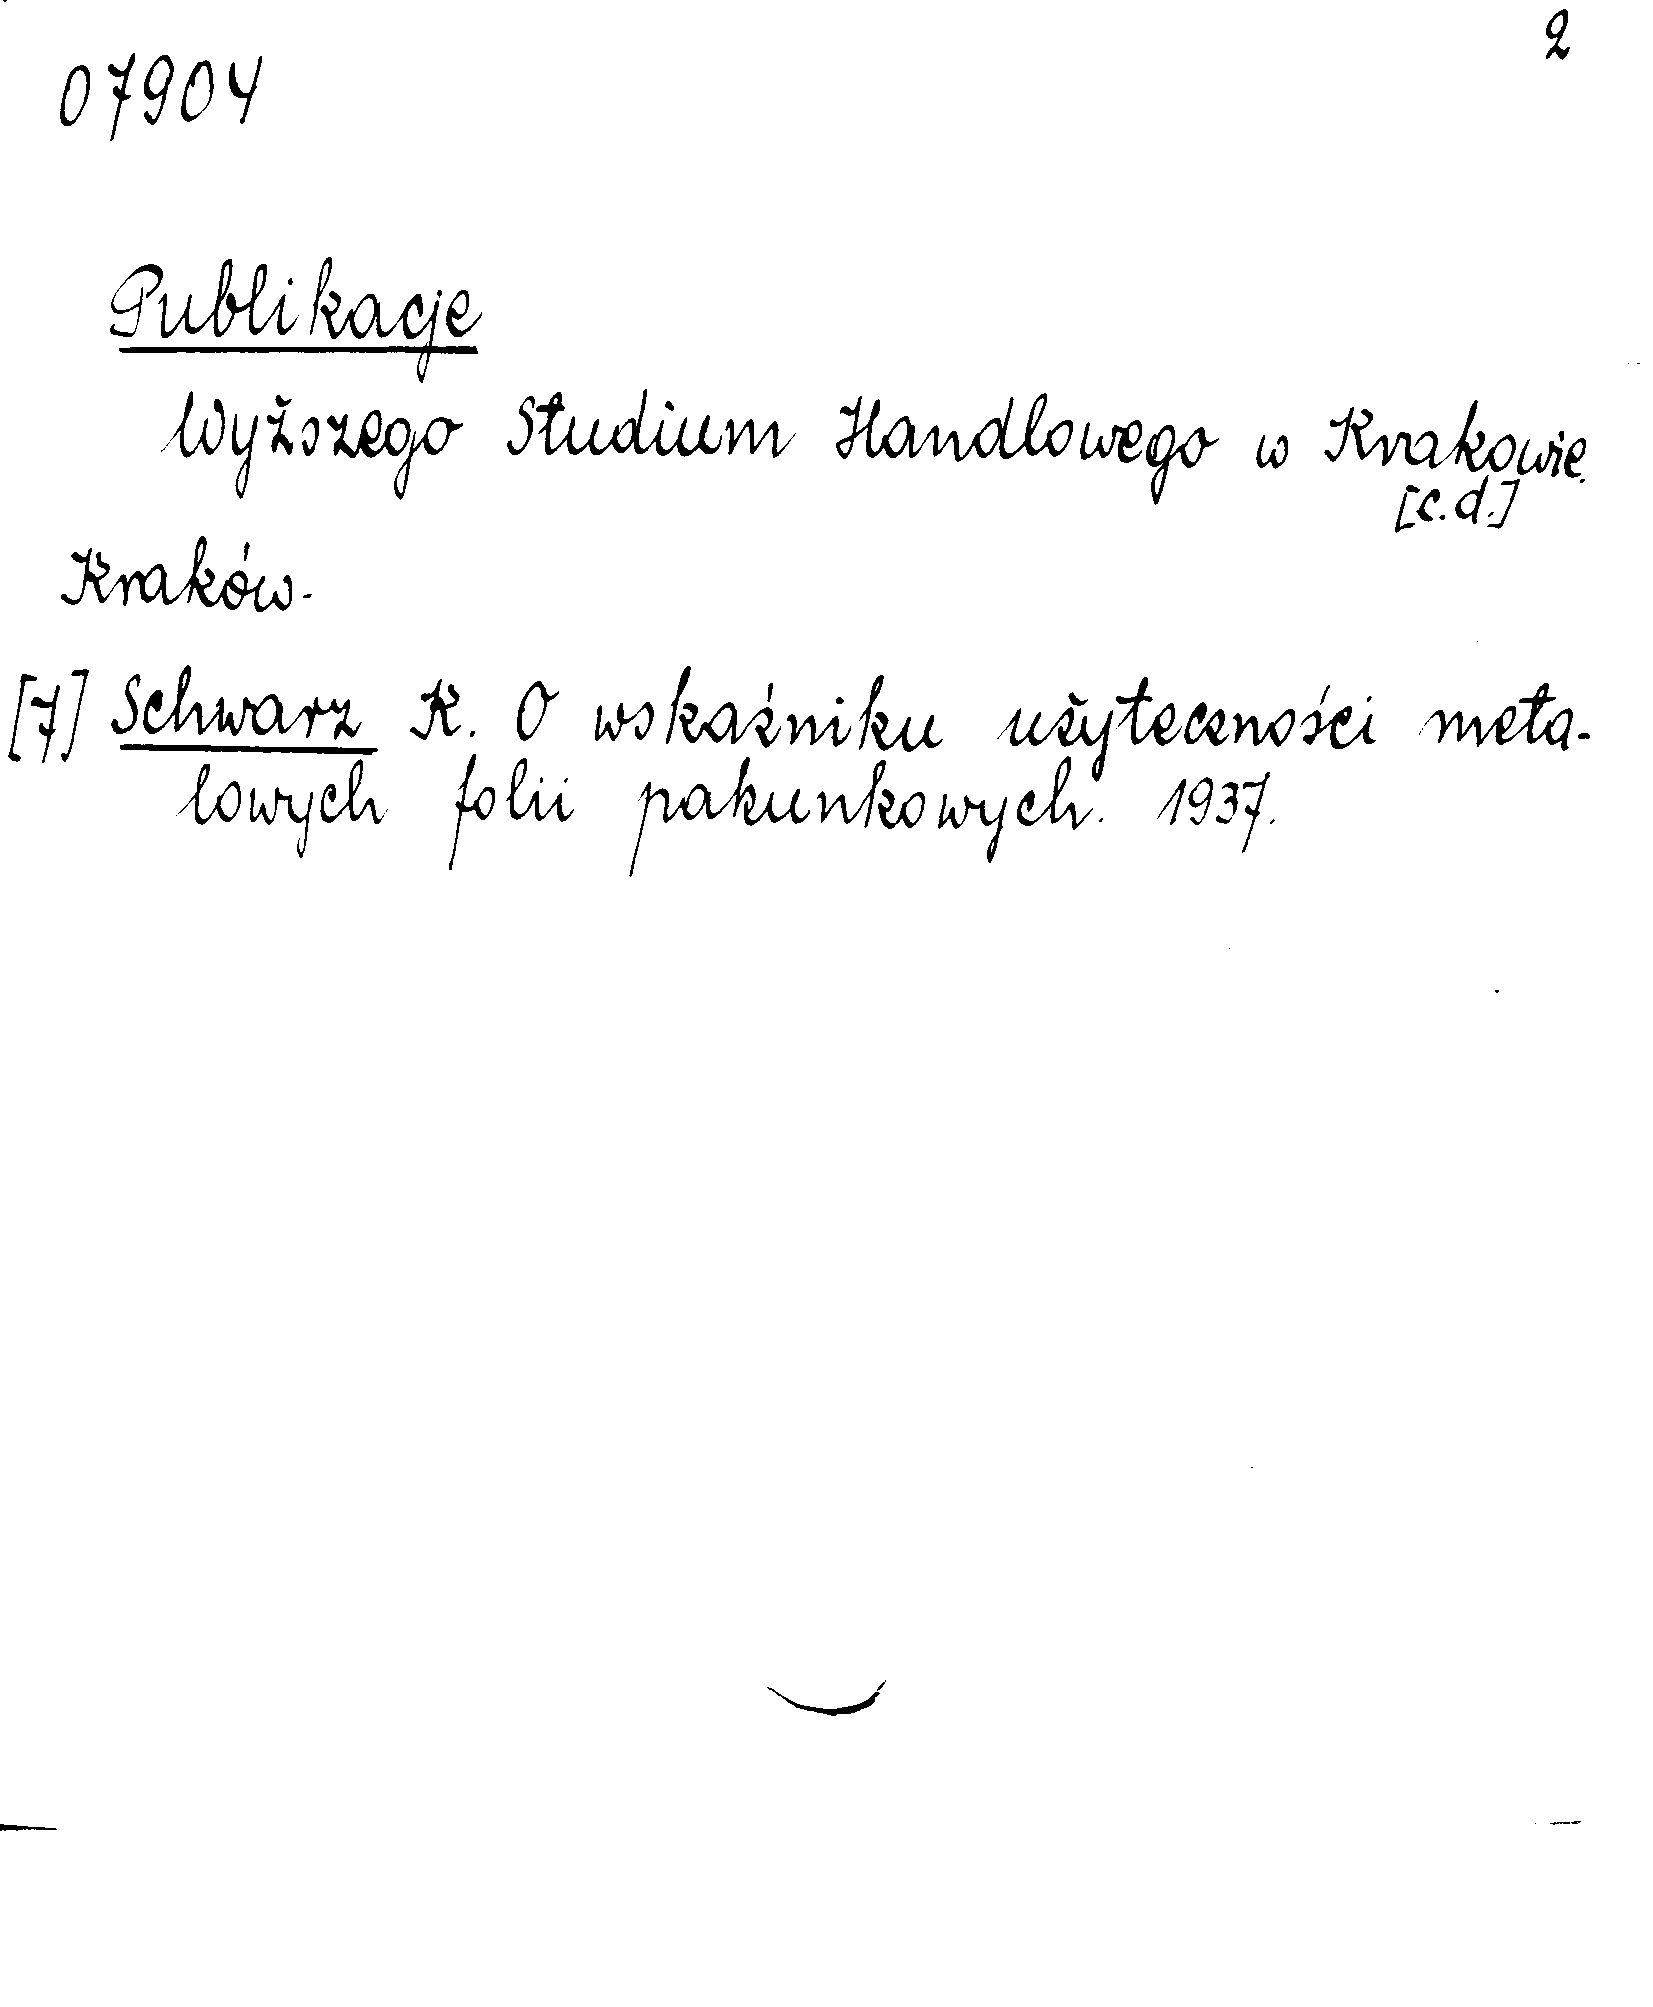 2
07904
Publikacje
Wyższego Studium Handlowego w Krakowie.
[c.d.]
Kraków.
[7] Schwarz K. O wskaźniku użyteczności meta-
lowych folii pakunkowych. 1937.